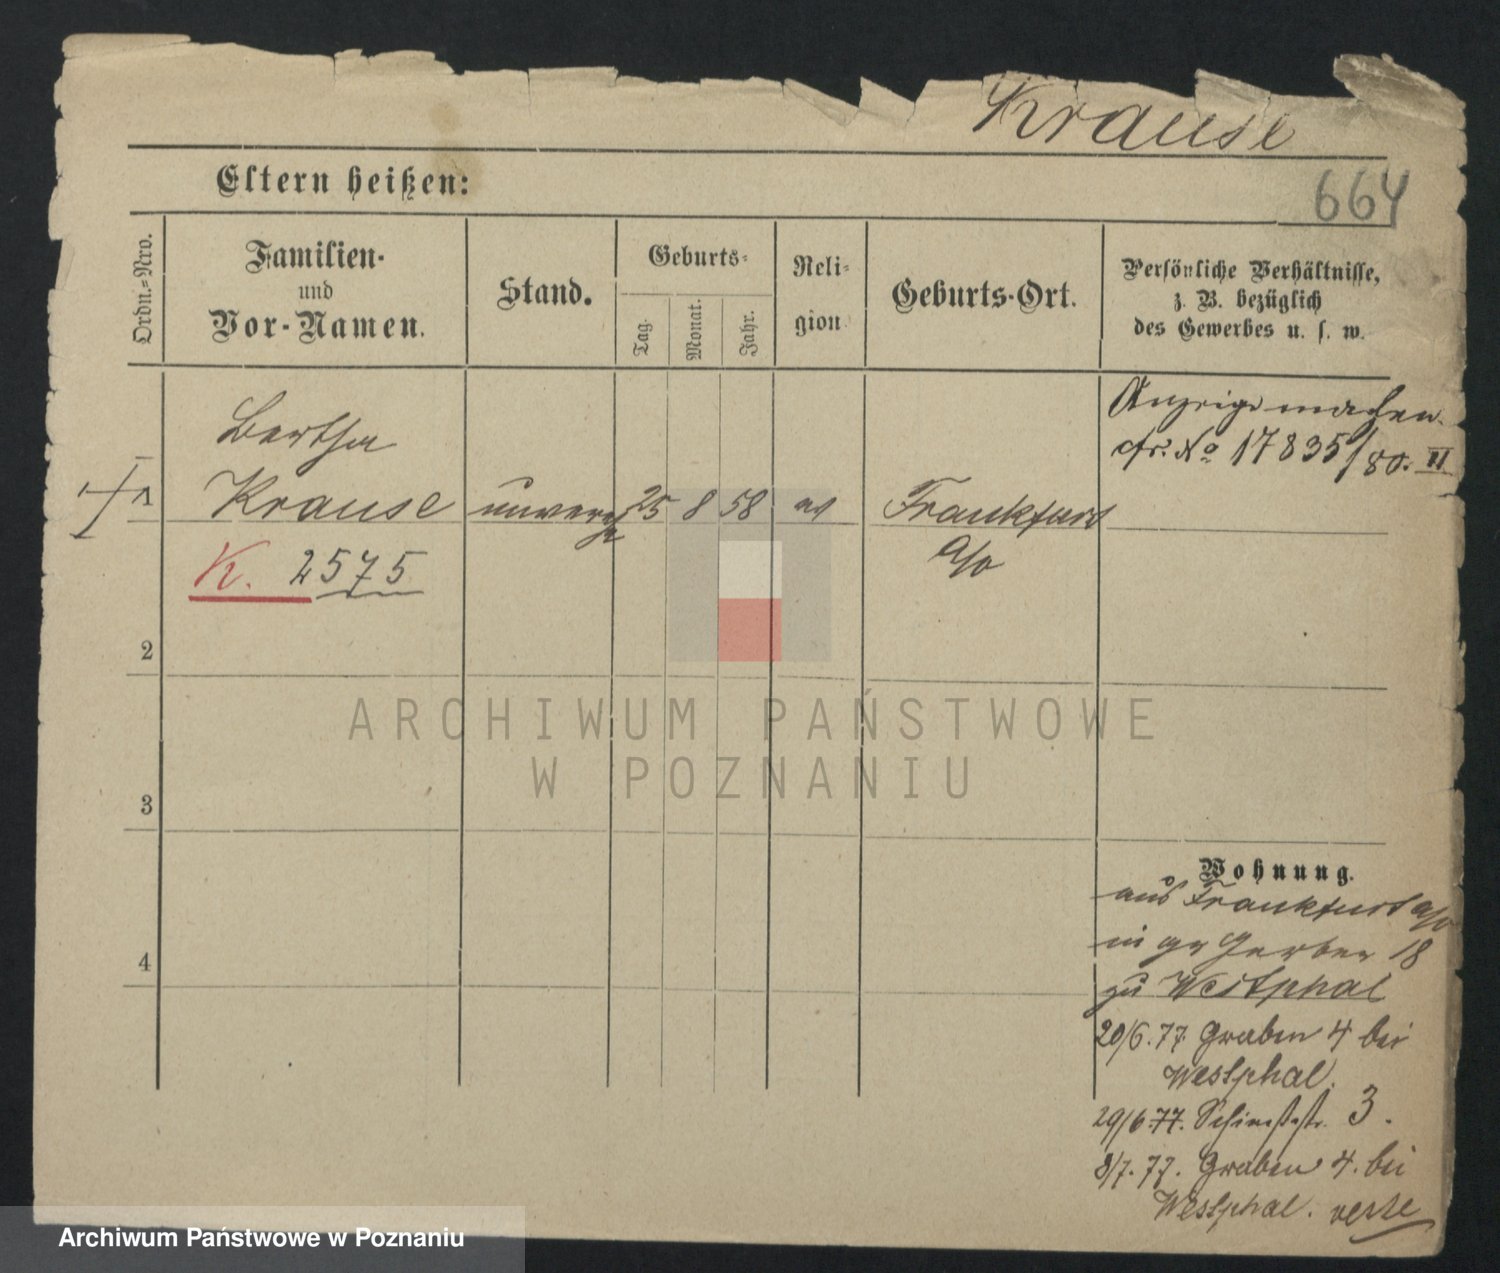 Krause
Eltern heißen:
664
Ordn.-Nro.
Familien-
und
Vor-Namen.
Stand.
Geburts-
Tag.
Monat.
Jahr.
Reli-
gion
Geburts-Ort.
Persönliche Verhältnisse,
z. B. bezüglich
des Gewerbes u. s. w.
Anzeige machen.
cfr. No 17835/80. II
Bertha
1 Krause unvereh 25 8 58 ev Frankfurt
a/o
K. 2575
2
3
4
Wohnung.
aus Frankfurt a/o
in gr Gerber 18
zu Westphal
20/6.77. Graben 4 bei
Westphal.
29/6.77. 3.
8/7.77. Graben 4. bei
Westphal.
ARCHIWUM PAŃSTWOWE
W POZNANIU
Archiwum Państwowe w Poznaniu